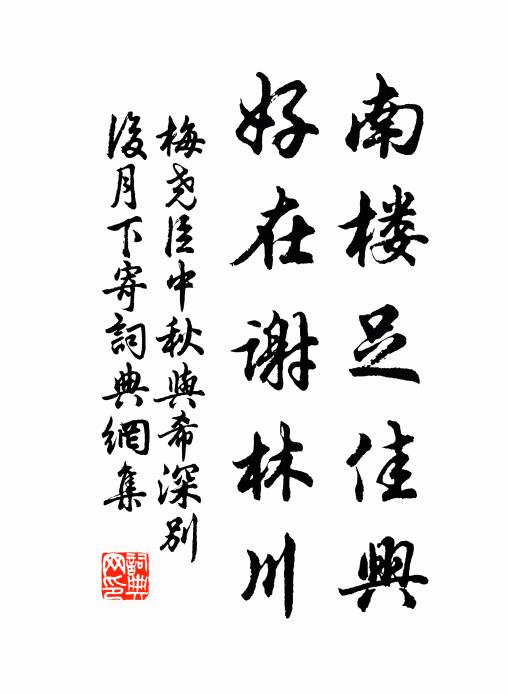 南楼足佳興
好在谢林川
梅尧臣中秋與希深别
後月下寄詞典網集
詞典网印